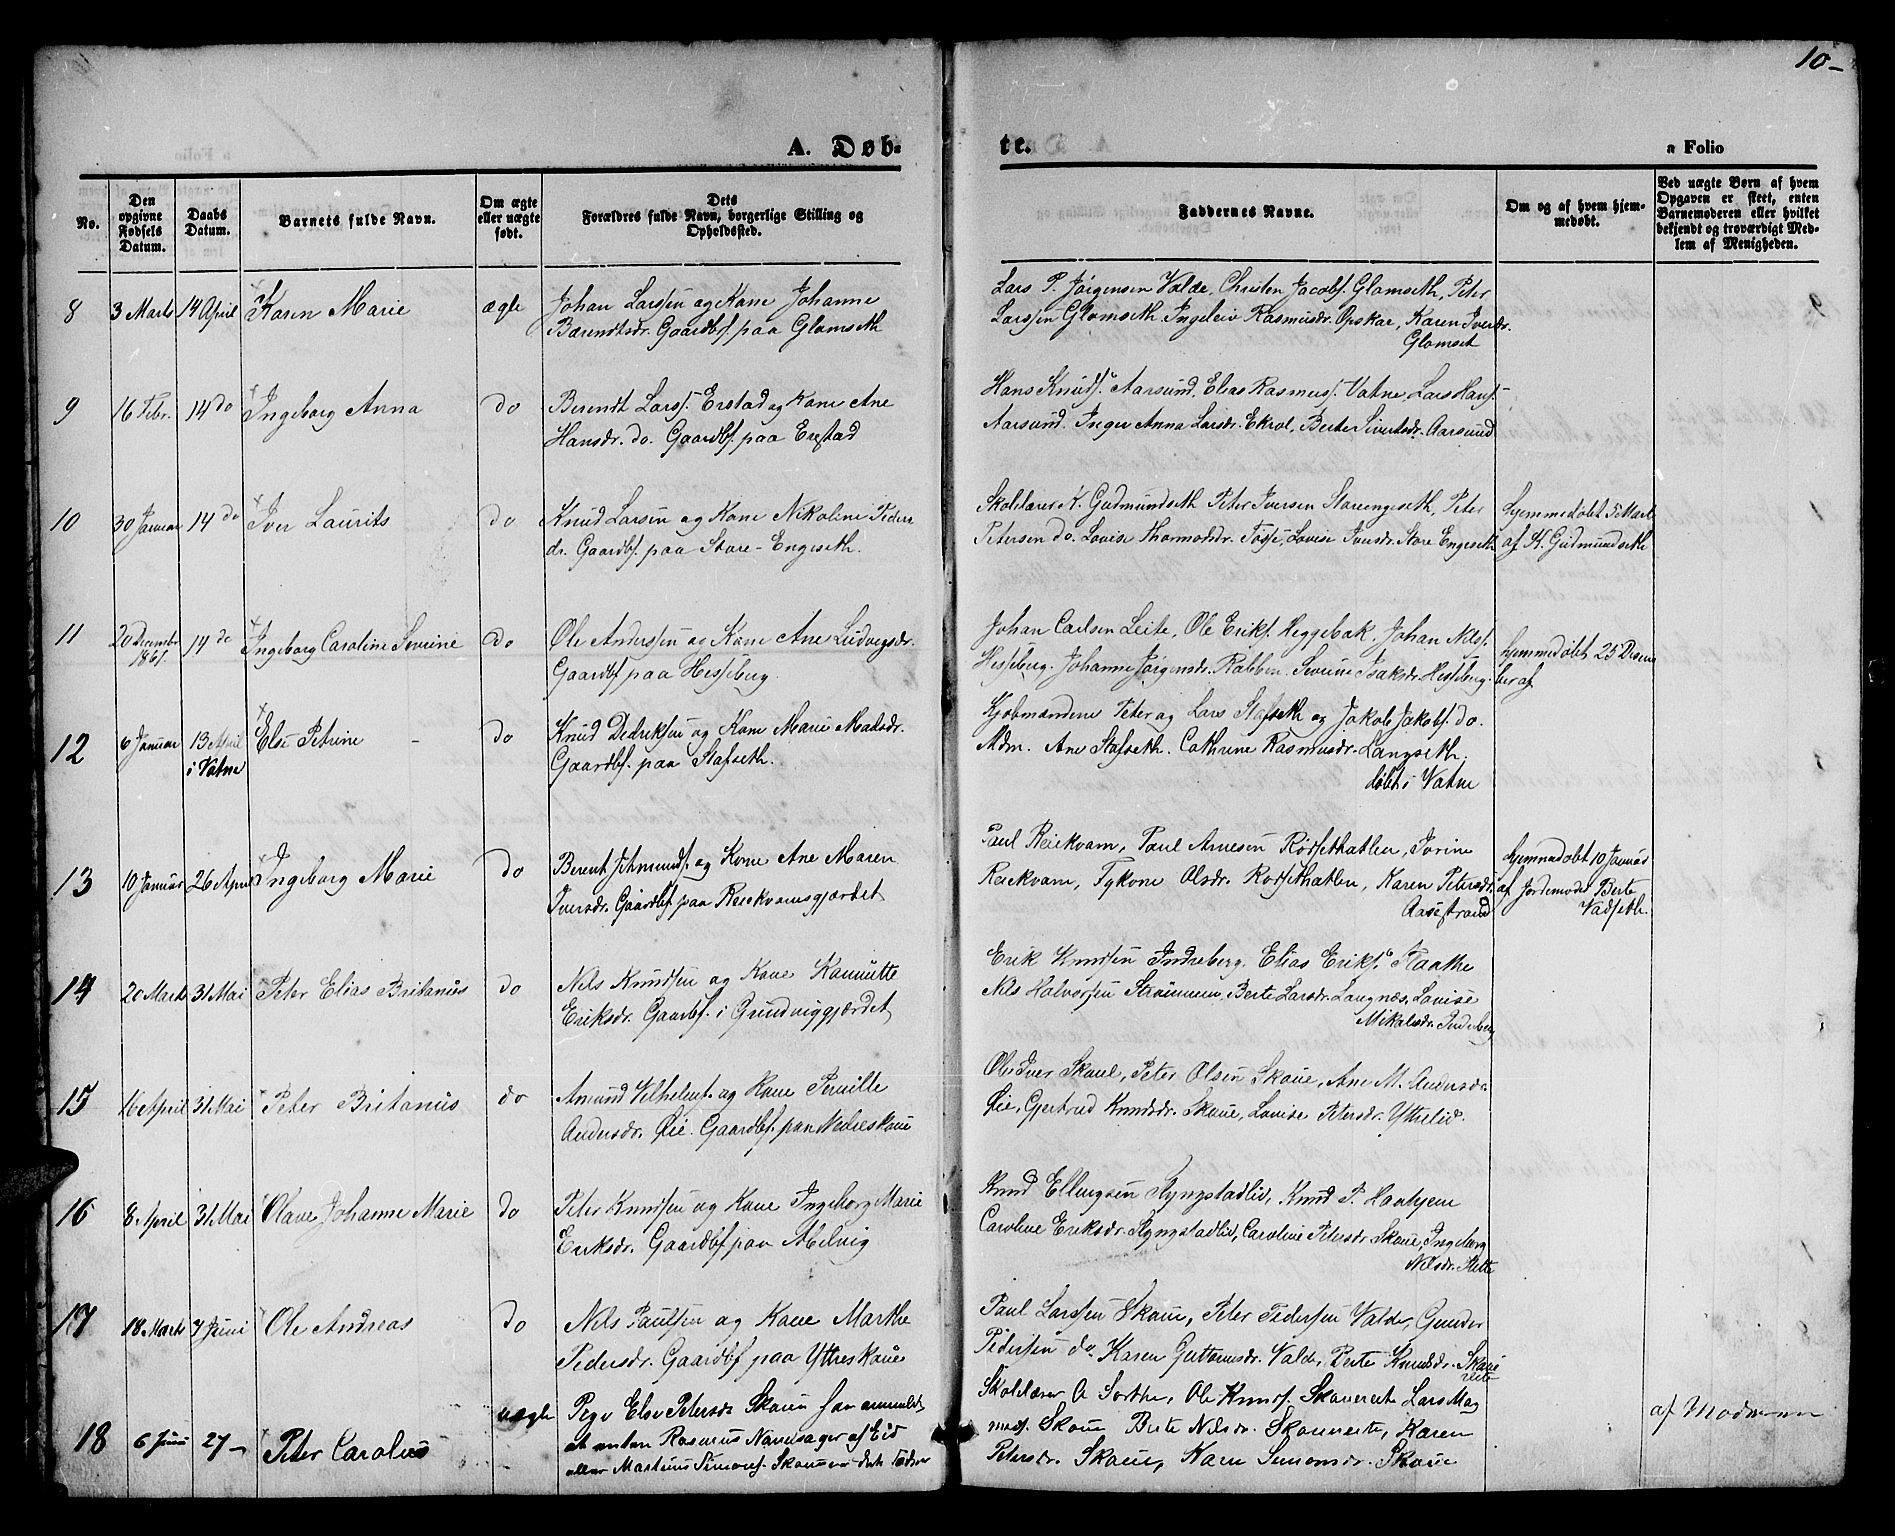 10-
A. Døb-
te.
a Folio
No.
Den opgivne Fødsels Datum.
Daabs Datum.
Barnets fulde Navn.
Om ægte eller uægte født.
Dets Forældres fulde Navn, borgerlige Stilling og Opholdssted.
Faddernes Navne.
Om og af hvem hjemmedøbt.
Ved uægte Børn af hvem Opgaven er skeet, enten Barnemoderen eller hvilket bekjendt og troværdigt Medlem af Menigheden.
8 3 Marts 14 April Karen Marie ægte
Johan Larssen og Kone Johanne
Barendtsdr. Gaardbf. paa Glamseth
Lars P. Jørgensen Valde, Christen Jacobs. Glamseth, Peter
Larssen Glomseth Ingeleiv Rasmusdr. Opskar, Karen Iversdr.
Glomset
9 16 Febr. 14 do Ingeborg Anna do
Berendt Larss. Erstad og Kone Ane
Hansdr. do. Gaardbf. paa Erstad
Hans Knuds. Aarsund, Elias Rasmuss. Vatne, Lars Hans.
Aarsund. Inger Anna Larsdr. Ekrol, Berte Sivertsdr. Aarsund
10 30 Januar 14 do Iver Laurits do
Knud Larsen og Kone Nikoline Peders
dr. Gaardbf. paa Store-Engeseth.
Skolelærer K. Gudmundseth Peter Iversen Storengeseth, Peter
Petersen do. Lovise Thormodsdr. Tøsse, Lovise Iversdr. Store Engeseth
Hjemmedøbt 5 Marts
af K. Gudmundseth
11 20 December 1861. 14 do Ingeborg Caroline Severine do
Ole Anderssen og Kone Ane Ludvigsdr.
Gaardbf paa Hesseberg.
Johan Carlsen Leite, Ole Eriks. Heggebak, Johan Nils.
Hesseberg. Johanne Jørgensdr. Rabben Severine Isaksdr. Hesseberg.
Hjemmedøbt 25 Decem
ber af
12 6 Januar 13 April i Vatne Else Petrine do
Knud Didriksen og Kone Marie Madsdr.
Gaardbf. paa Stafseth.
Kjøbmændene Peter og Lars Stafseth og Jakob Jakobs. do.
Mdm. Ane Stafseth. Cathrine Rasmusdr. Langseth.
døbt i Vatne
13 10 Januar 26 April Ingeborg Marie do
Berent Amunds. og Kone Ane Maren
Iversdr. Gaardbf paa Reiekvamsgjærdet
Paul Reiekvam, Paul Arnesen Rødsethatlen, Jorine
Reiekvam, Tykone Olsdr. Rødsethatlen, Karen Petersdr.
Aasestrand
Hjemmedøbt 10 Januar
af Jordemoder Berte
Vadseth.
14 20 Marts 31 Mai Peter Elias Britanus do
Nels Knudsen og Kone
Eriksdr. Gaardbf. i Grundviggjærdet
Erik Knudsen Indreberg. Elias Eriks. Flaathe
Nels Halvorsen Strømmen, Berte Larsdr. Langnæs, Lovise
Mikalsdr. Inderberg
15 16 April 31 Mai Peter Britanus do
Amund Vilhelms. og Kone Pernille
Andersdr. Øie. Gaardbf. paa Nedreskoue
Ole Iver Skoue, Peter Olsen Skoue, Ane M. Andersdr.
Øie, Gjertrud Knudsdr. Skoue, Lovise Petersdr. Ytrelid.
16 8 April 31 Mai Olave Johanne Marie do
Peter Knudsen og Kone Ingeborg Marie
Eriksdr. Gaardbf paa Abelvig
Knud Ellingsen Slyngstadlid, Knud P. Haahjem
Caroline Eriksdr. Slyngstadlid, Caroline Petersdr Skoue, Ingeborg
Nelsdr. Slette
17 18 Marts 7 Juni Ole Andreas do
Nels Paulsen og Kone Marthe
Pedersdr. Gaardbf paa Yttreskoue
Paul Larssen Skoue, Peter Pedersen Valde, Gunder
Pedersen do. Karen Guttormsdr. Valde, Berte Knudsdr. Skoue
reite
18 6 Juni 27 - Peter Carolus uægte
Pige Else Petersdr Skoue har anmeldt
at enten Rasmus Nansager af Eid
eller Martinus Simons. Skoue er dets Fader
Skolelærer O Sorthe, Ole Knuds. Skouereit Lars Mag
nuss. Skoue Berte Nelsdr. Skouereite, Karen
Petersdr. Skoue, Karn Simonsdr. Skoue
af Moderen